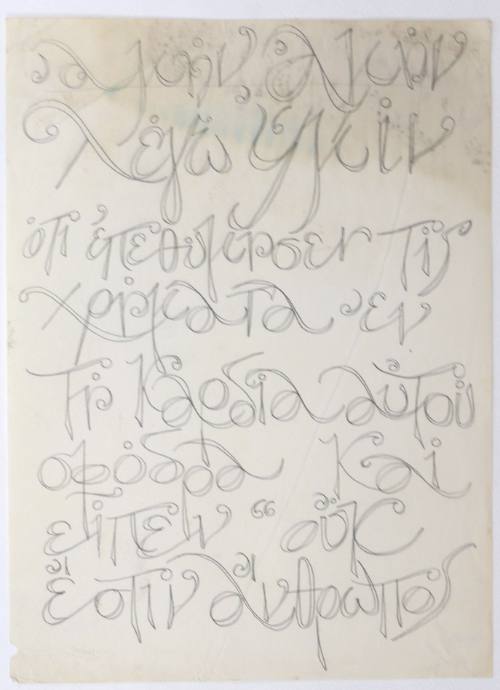 ἀμήν ἀμήν
λέγω ὑμῖν
ὅτι ἐπεθύμησεν τις
χρήματα ἐν
τῇ καρδίᾳ αὐτοῦ
σφόδρα καὶ
εἶπεν “οὐκ
ἔστιν ἄνθρωπος